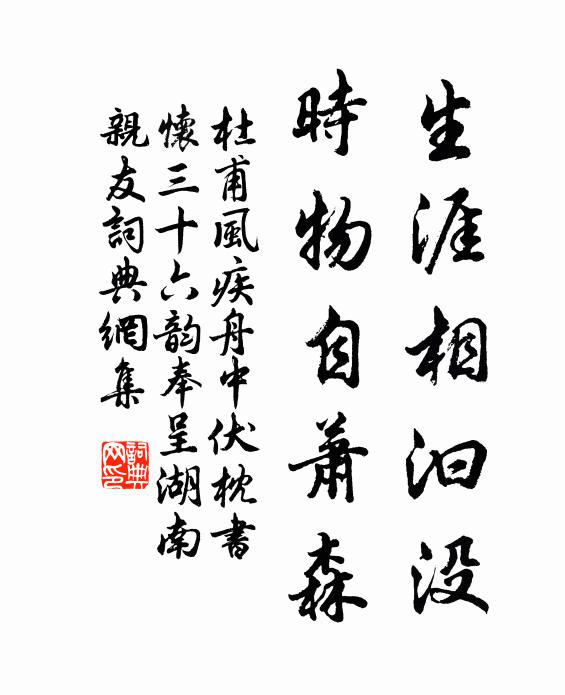 生涯相汩没
時物自蕭森
杜甫風疾舟中伏枕書
懷三十六韵奉呈湖南
親友詞典網集
詞典网印